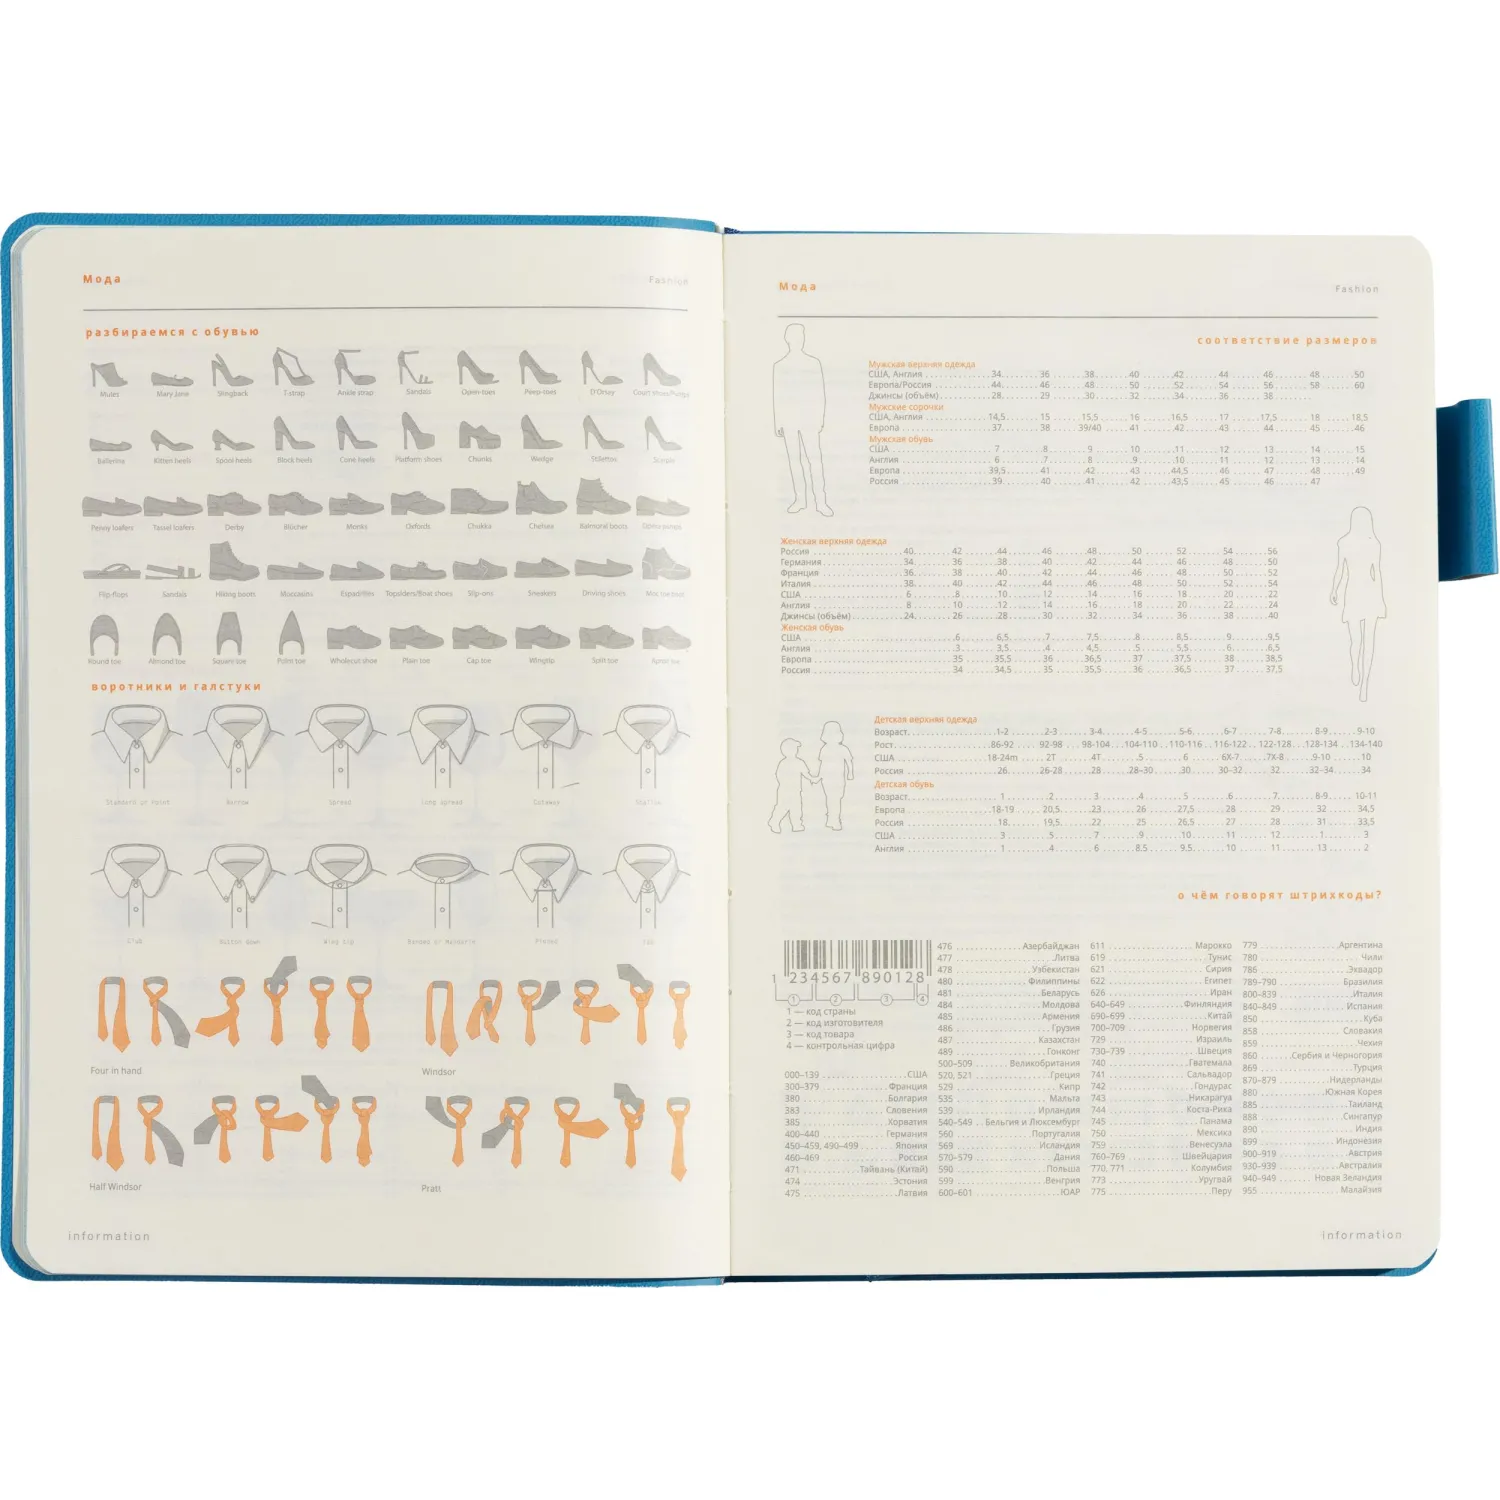 Мода Fashion
разбираемся с обувью
Mules Mary Jane Slingback T-strap Ankle strap Sandals Open-toes Peep-toes D'Orsay Court shoes/Pumps
Ballerina Kitten heels Spool heels Block heels Cone heels Platform shoes Chunks Wedge Stilettos
Penny loafers Tassel loafers Derby Blücher Monks Oxfords Chukka Chelsea Balmoral boots Opera pumps
Flip-flops Sandals Hiking boots Moccasins Espadrilles Topsiders/Boat shoes Slip-ons Sneakers Driving shoes Moc toe boot
Round toe Almond toe Square toe Point toe Wholecut shoe Plain toe Cap toe Wingtip Split toe Apron toe
воротники и галстуки
Standard or Point Narrow Spread Long spread Cutaway Shallow
Club Button down Wing tip Banded or Mandarin Pinned Tab
Four in hand Windsor
Half Windsor Pratt
information
Мода Fashion
соответствие размеров
Мужская верхняя одежда
США, Англия 34 36 38 40 42 44 46 48 50
Европа/Россия 44 46 48 50 52 54 56 58 60
Джинсы (объём) 28 29 30 32 34 36 38
Мужские сорочки
США, Англия 14,5 15 15,5 16 16,5 17 17,5 18 18,5
Европа 37 38 39/40 41 42 43 44 45 46
Мужская обувь
США 7 8 9 10 11 12 13 14 15
Англия 6 7 8 9 10 11 12 13 14
Европа 39,5 41 42 43 44,5 46 47 48 49
Россия 39 40 41 42 43,5 45 46 47
Женская верхняя одежда
Россия 40 42 44 46 48 50 52 54 56
Германия 34 36 38 40 42 44 46 48 50
Франция 36 38 40 42 44 46 48 50 52
Италия 38 40 42 44 46 48 50 52 54
США 6 8 10 12 14 16 18 20 22
Англия 8 10 12 14 16 18 20 22 24
Джинсы (объём) 24 26 28 30 32 34 36 38 40
Женская обувь
США 6 6,5 7 7,5 8 8,5 9 9,5
Англия 3 3,5 4 4,5 5 5,5 6 6,5
Европа 35 35,5 36 36,5 37 37,5 38 38,5
Россия 34 34,5 35 35,5 36 36,5 37 37,5
Детская верхняя одежда
Возраст 1-2 2-3 3-4 4-5 5-6 6-7 7-8 8-9 9-10
Рост 86-92 92-98 98-104 104-110 110-116 116-122 122-128 128-134 134-140
США 18-24m 2T 4T 5 6 6X-7 7X-8 9-10 10
Россия 26 26-28 28 28-30 30 30-32 32 32-34 34
Детская обувь
Возраст 1 2 3 4 5 6 7 8-9 10-11
Европа 18-19 20,5 23 26 27,5 28 29 32 34,5
Россия 18 19,5 22 25 26,5 27 28 31 33,5
США 3 5 7 9 10 11 12 1 3
Англия 1 4 6 8.5 9.5 10 11 13 2
о чём говорят штрихкоды?
1 234567 890128
1 2 3 4
1 — код страны
2 — код изготовителя
3 — код товара
4 — контрольная цифра
000–139 США
300–379 Франция
380 Болгария
383 Словения
385 Хорватия
400–440 Германия
450–459, 490–499 Япония
460–469 Россия
471 Тайвань (Китай)
474 Эстония
475 Латвия
476 Азербайджан
477 Литва
478 Узбекистан
480 Филиппины
481 Беларусь
484 Молдова
485 Армения
486 Грузия
487 Казахстан
489 Гонконг
500–509 Великобритания
520, 521 Греция
529 Кипр
535 Мальта
539 Ирландия
540–549 Бельгия и Люксембург
560 Португалия
569 Исландия
570–579 Дания
590 Польша
599 Венгрия
600–601 ЮАР
611 Марокко
619 Тунис
621 Сирия
622 Египет
626 Иран
640–649 Финляндия
690–699 Китай
700–709 Норвегия
729 Израиль
730–739 Швеция
740 Гватемала
741 Сальвадор
742 Гондурас
743 Никарагуа
744 Коста-Рика
745 Панама
750 Мексика
759 Венесуэла
760–769 Швейцария
770, 771 Колумбия
773 Уругвай
775 Перу
779 Аргентина
780 Чили
786 Эквадор
789–790 Бразилия
800–839 Италия
840–849 Испания
850 Куба
858 Словакия
859 Чехия
860 Сербия и Черногория
869 Турция
870–879 Нидерланды
880 Южная Корея
885 Таиланд
888 Сингапур
890 Индия
899 Индонезия
900–919 Австрия
930–939 Австралия
940–949 Новая Зеландия
955 Малайзия
information